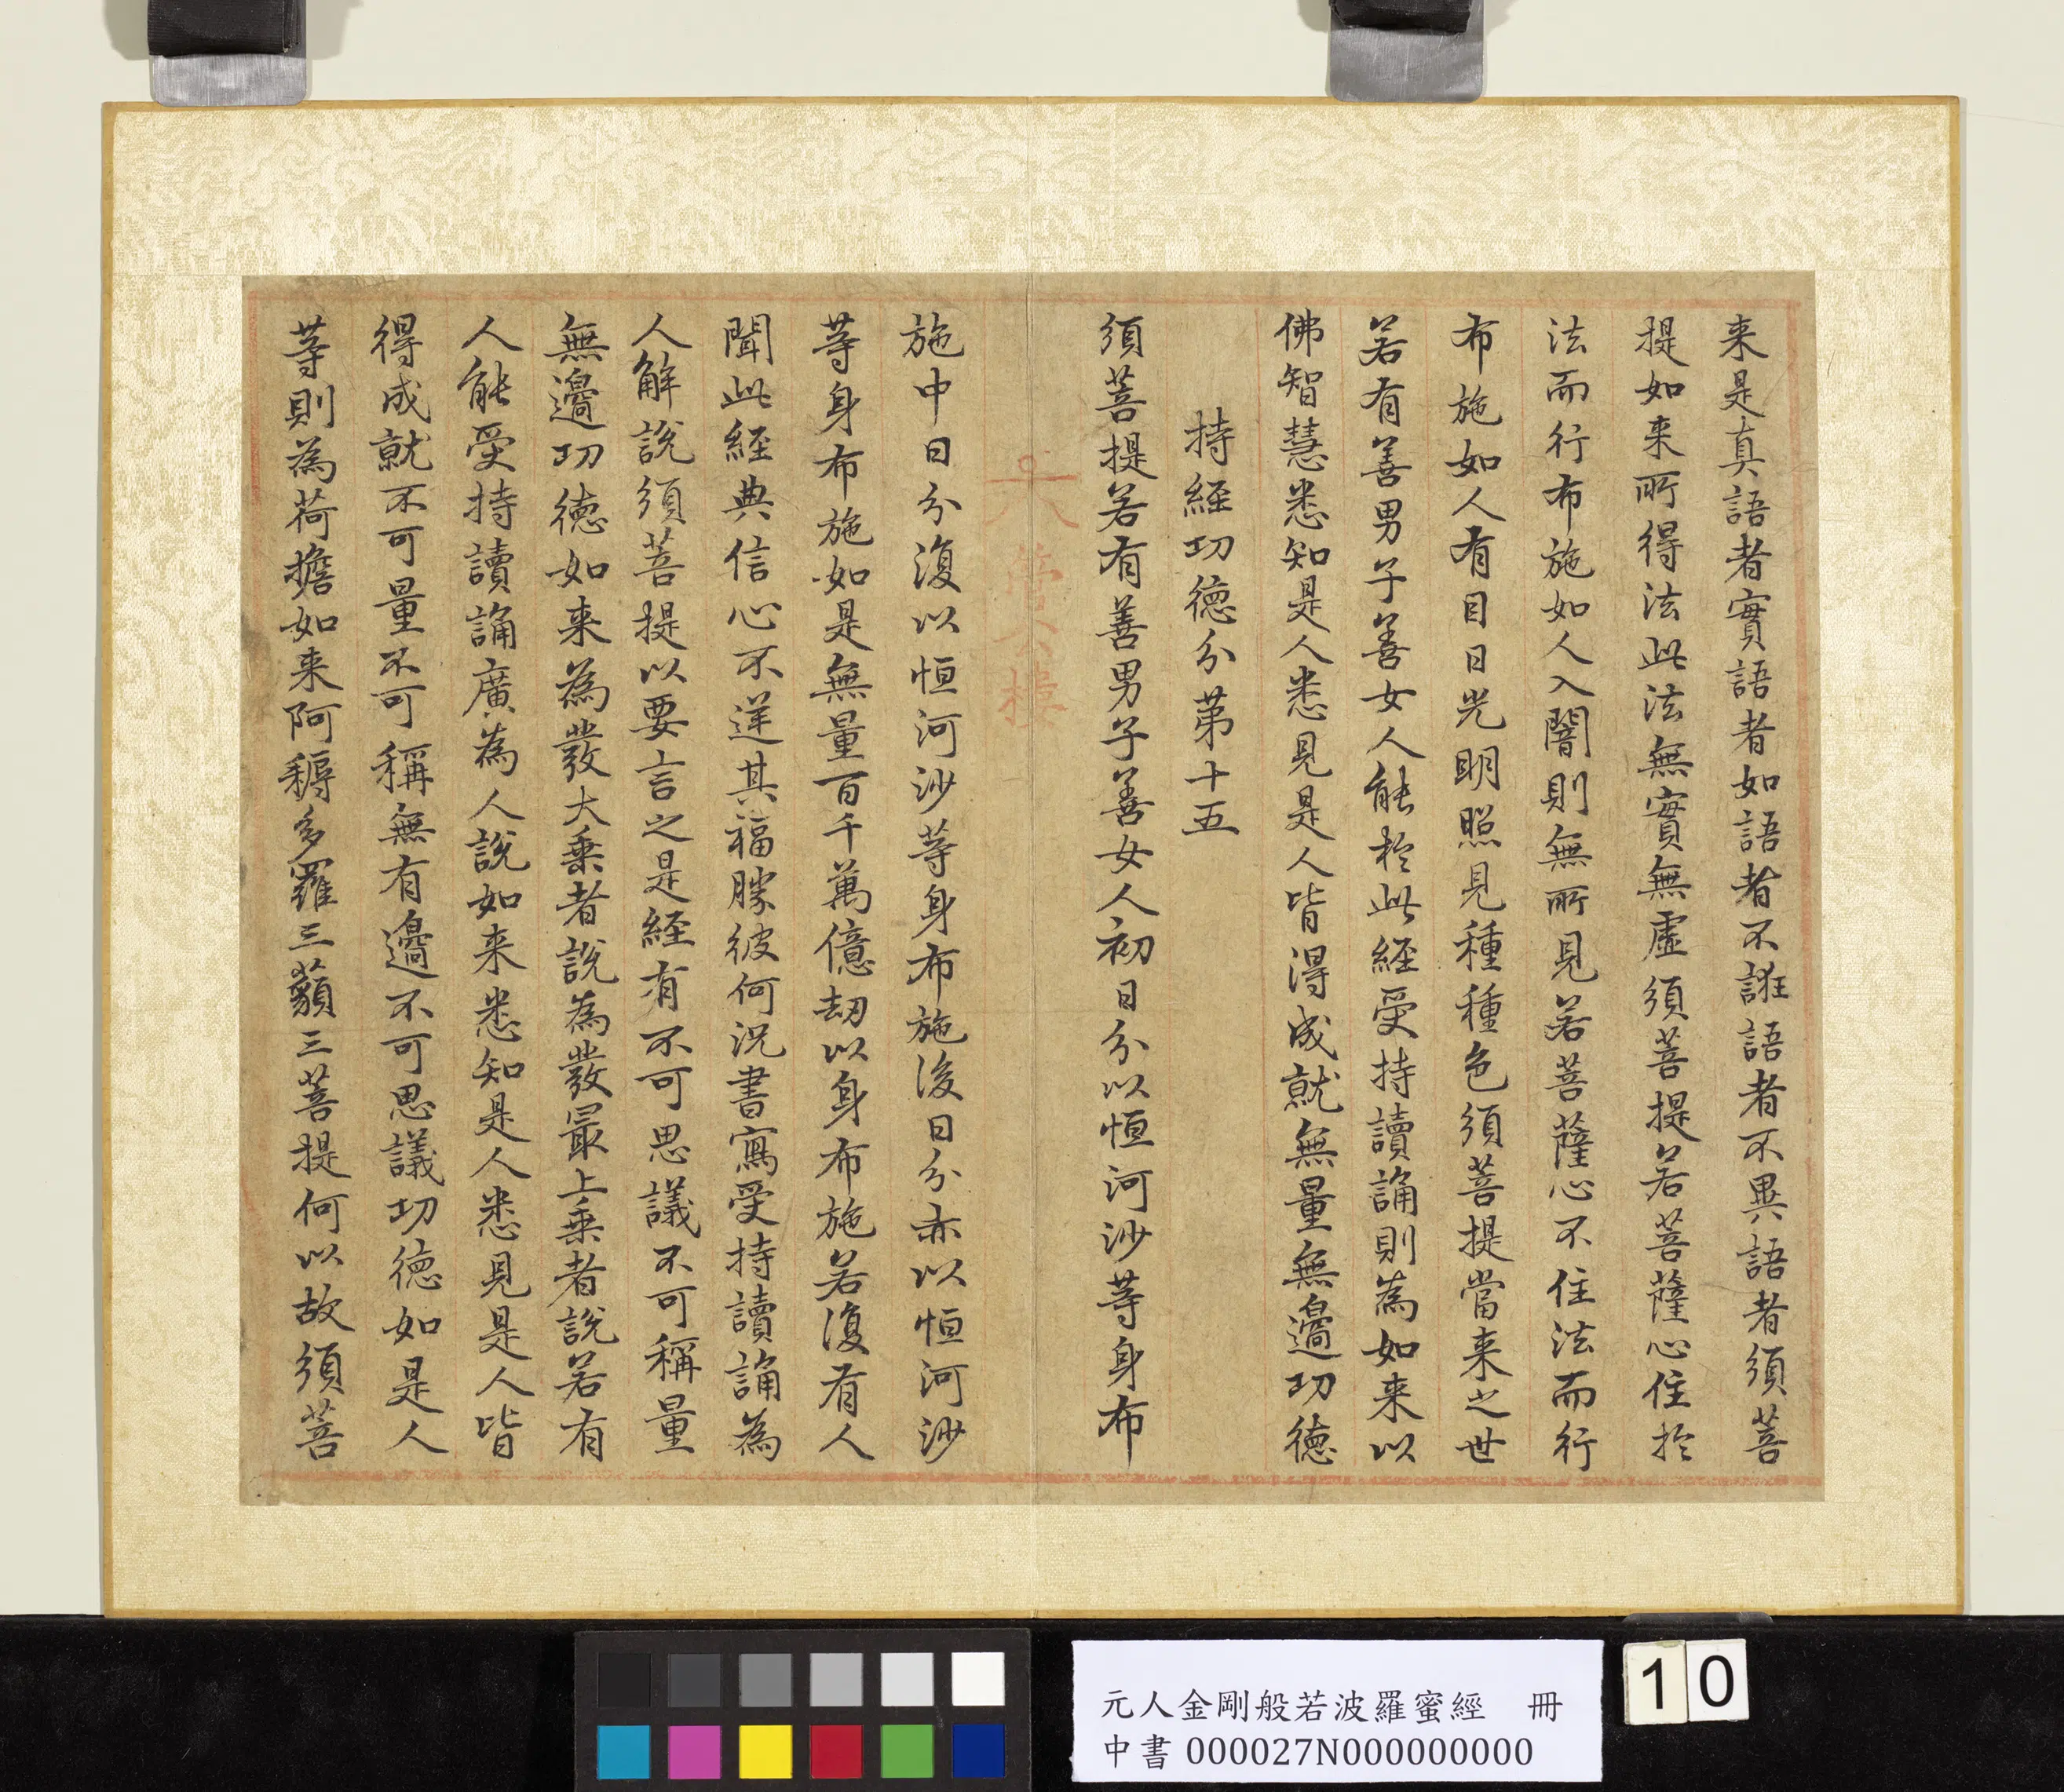 来是真語者實語者如語者不誑語者不異語者須菩
提如来所得法此法無實無虛須菩提若菩薩心住於
法而行布施如人入闇則無所見若菩薩心不住法而行
布施如人有目日光明照見種種色須菩提當来之世
若有善男子善女人能於此經受持讀誦則為如来以
佛智慧悉知是人悉見是人皆得成就無量無邊功德
持經功德分第十五
須菩提若有善男子善女人初日分以恒河沙等身布
施中日分復以恒河沙等身布施後日分亦以恒河沙
等身布施如是無量百千萬億劫以身布施若復有人
聞此經典信心不逆其福勝彼何況書寫受持讀誦為
人解說須菩提以要言之是經有不可思議不可稱量
無邊功德如来為發大乘者說為發最上乘者說若有
人能受持讀誦廣為人說如来悉知是人悉見是人皆
得成就不可量不可稱無有邊不可思議功德如是人
等則為荷擔如来阿耨多羅三藐三菩提何以故須菩
元人金剛般若波羅蜜經 冊
中書 000027N000000000
10